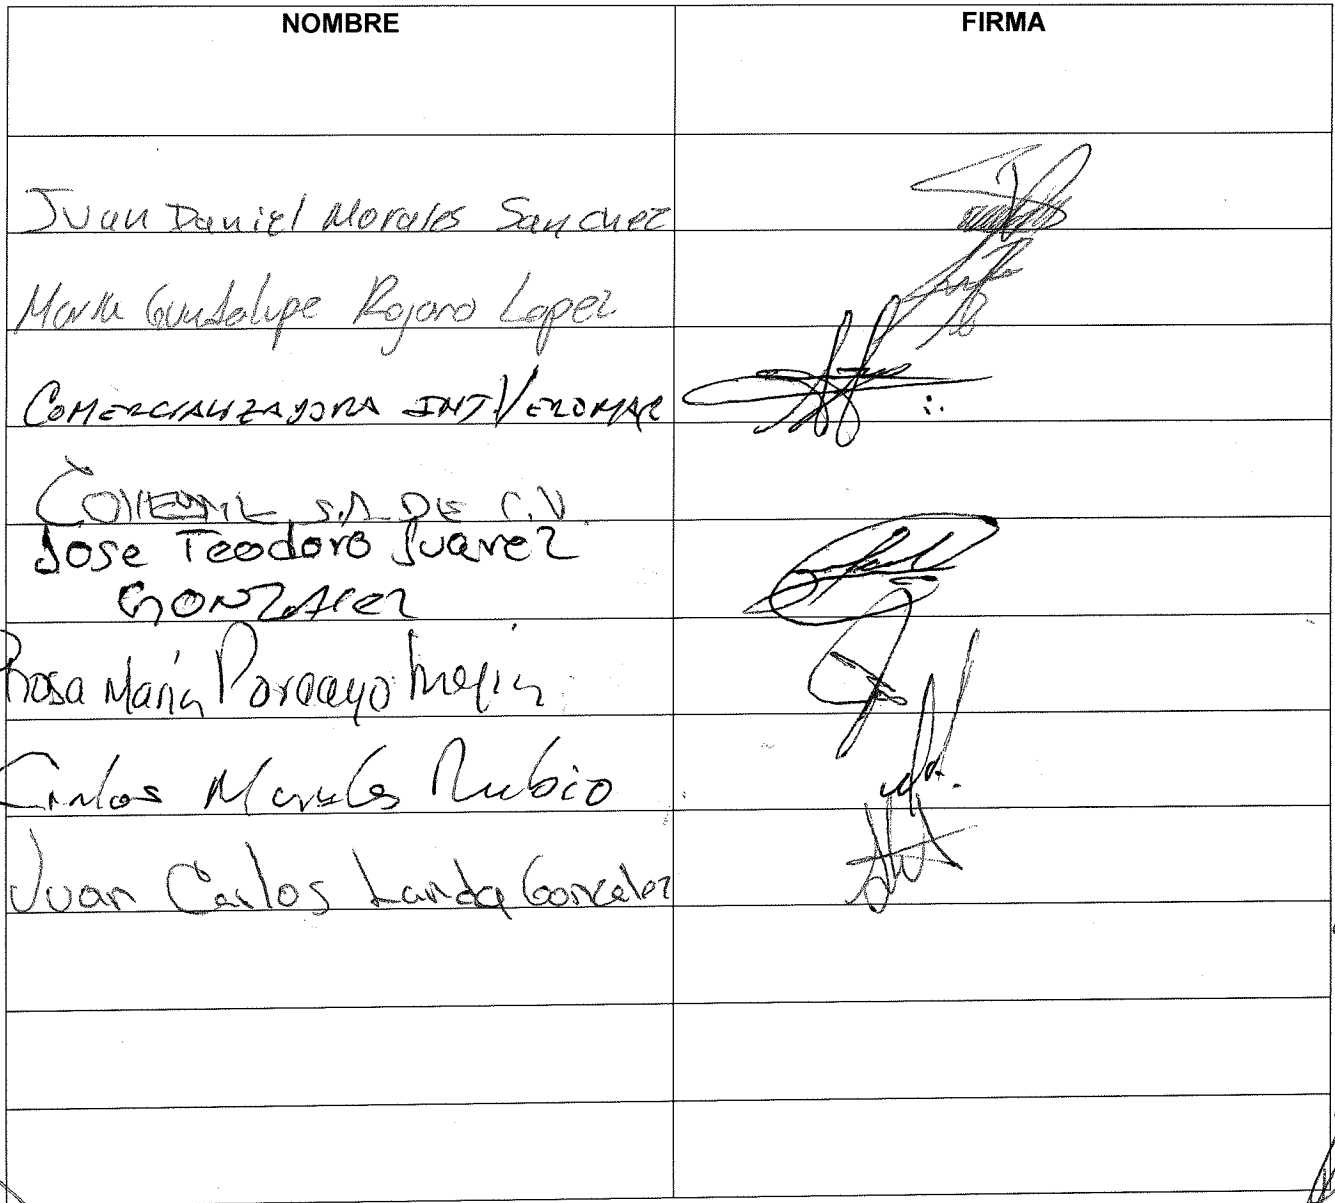 NOMBRE FIRMA
Juan Daniel Morales Sanchez
Maria Guadalupe Rojano Lopez
COMERCIALIZADORA INT. VEROMAR
S.A DE C.V.
Jose Teodoro Juarez
GONZALEZ
Rosa María Porcayo Mejia
Carlos Morales Rubio
Juan Carlos Landa Gonzalez